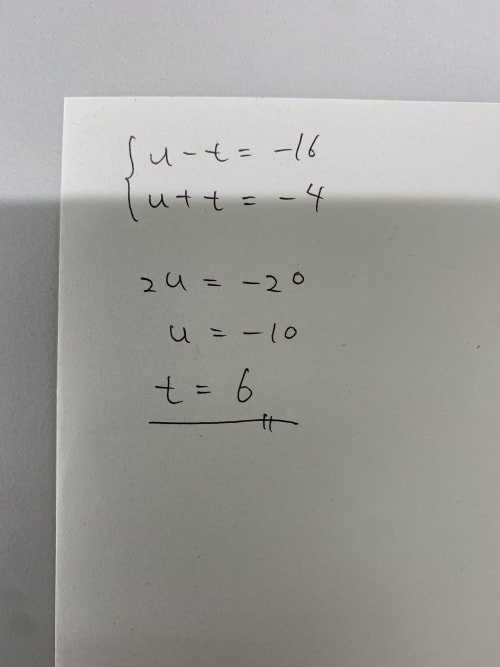 u - t = -16
u + t = -4
2u = -20
u = -10
t = 6